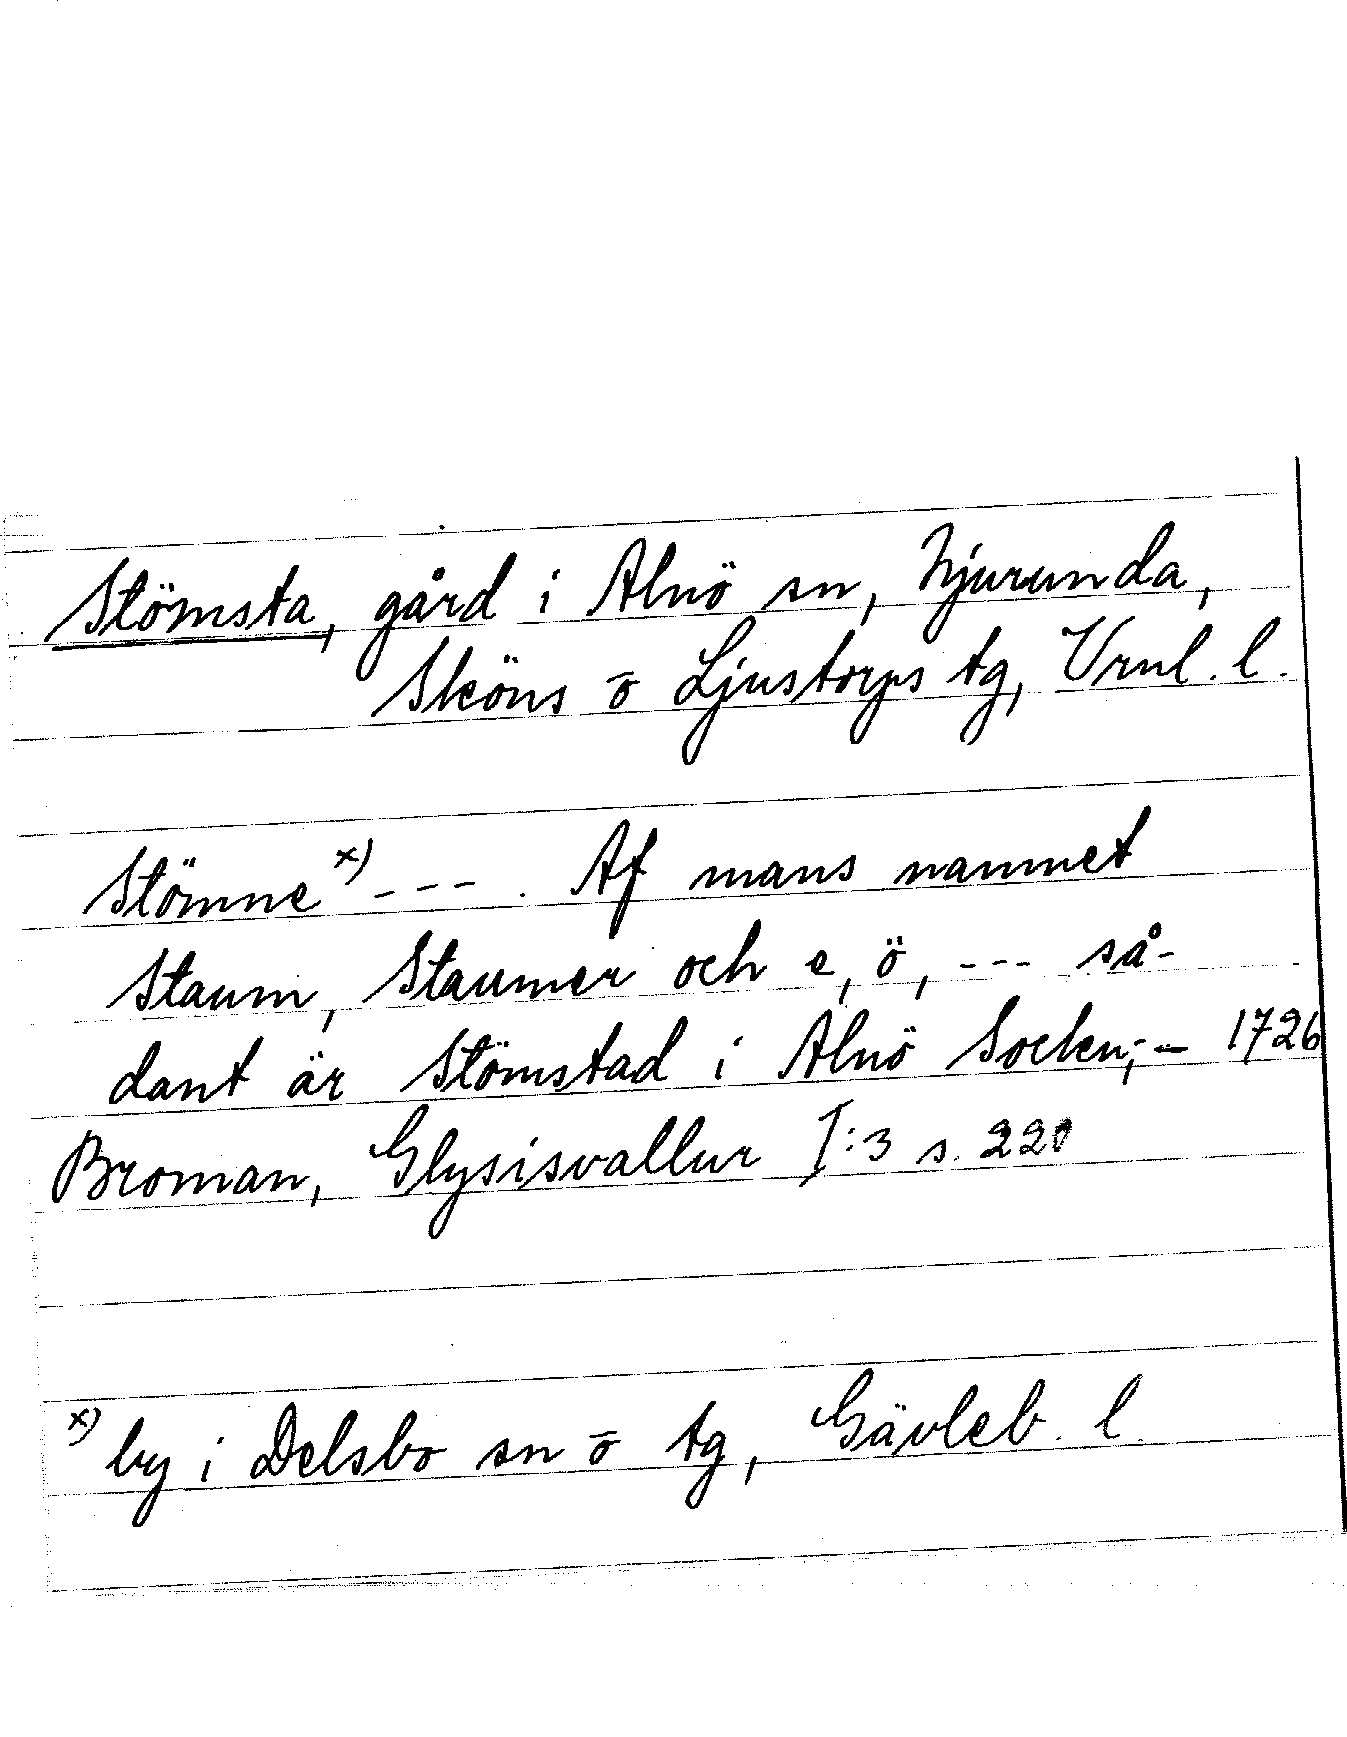 Stömsta, gård i Alnö sn, Njurunda,
Sköns o Ljustorps tg, Vrnl. l.
Stömne x) - - - . Af mans namnet
Staum, Staumer och e, ö, - - - så-
dant är Stömstad i Alnö Socken; - 1726
Broman, Glysisvallur I:3 s. 220
x) by i Delsbo sn o tg, Gävleb. l.